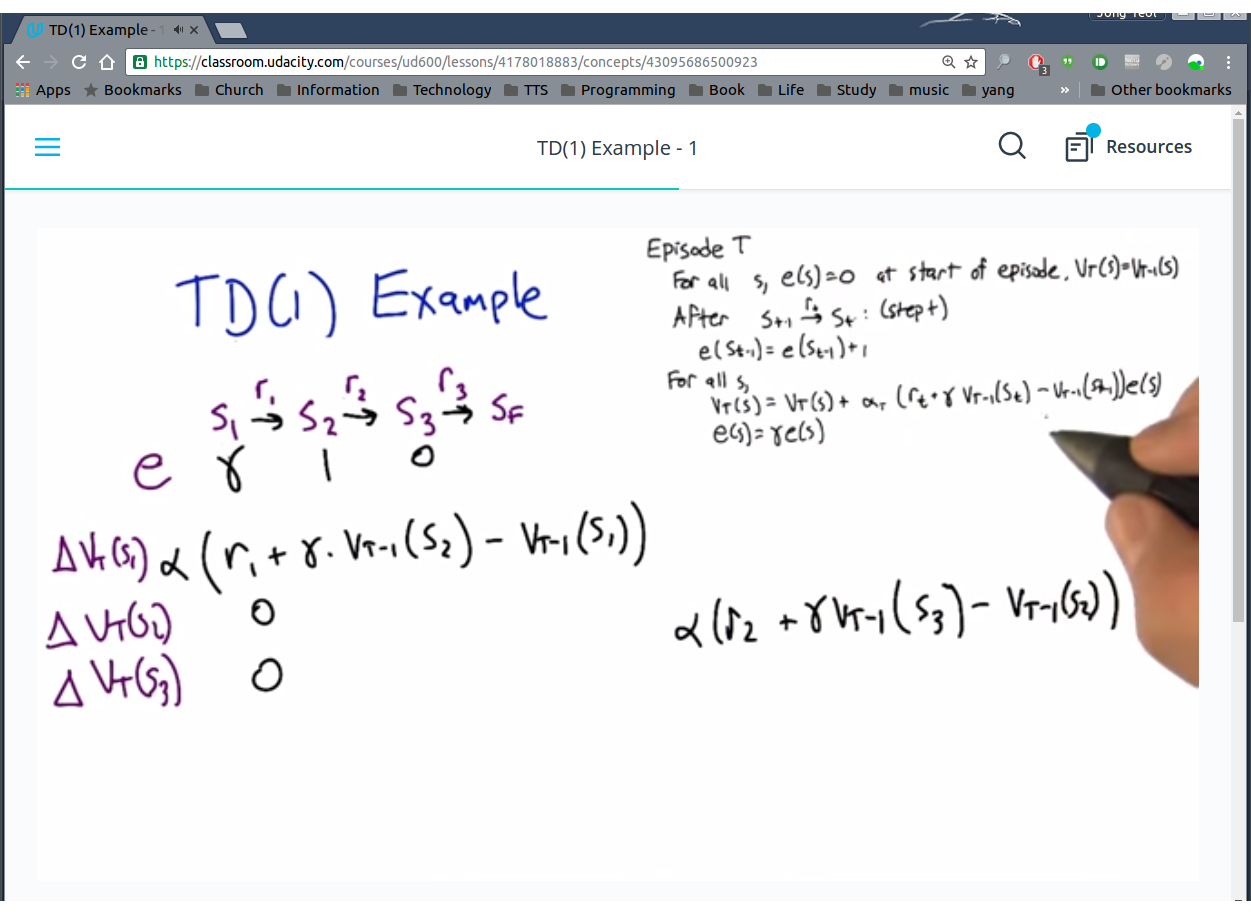 TD(1) Example - 1
Jong Yeol
https://classroom.udacity.com/courses/ud600/lessons/4178018883/concepts/43095686500923
3
Apps Bookmarks Church Information Technology TTS Programming Book Life Study music yang » Other bookmarks
TD(1) Example - 1
Resources
TD(1) Example
r₁ r₂ r₃
S₁ → S₂ → S₃ → SF
e γ 1 0
ΔVT(S₁) α(r₁ + γ · VT-1(S₂) - VT-1(S₁))
ΔVT(S₂) 0
ΔVT(S₃) 0
Episode T
For all s, e(s)=0 at start of episode, VT(s)=VT-1(s)
After St-1 →rt St : (step t)
e(St-1) = e(St-1)+1
For all s,
VT(s) = VT(s) + αT (rt + γ VT-1(St) - VT-1(St-1))e(s)
e(s) = γe(s)
α(r₂ + γVT-1(S₃) - VT-1(S₂))